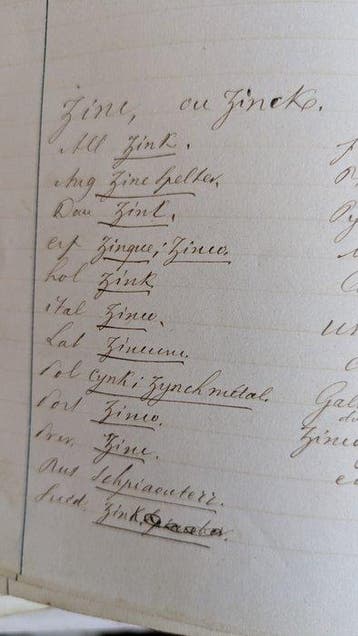 Zinc, ou Zinck.
All Zink.
Ang Zinc Spelter.
Dan Zink.
esp Zinque; Zinco.
hol Zink
ital Zinco.
Lat Zincum.
Pol Cynk; Zynchmetal.
Port Zinco.
Prov. Zinc.
Rus Schpiaouterr.
Sued. Zink.
Gal
Zinco